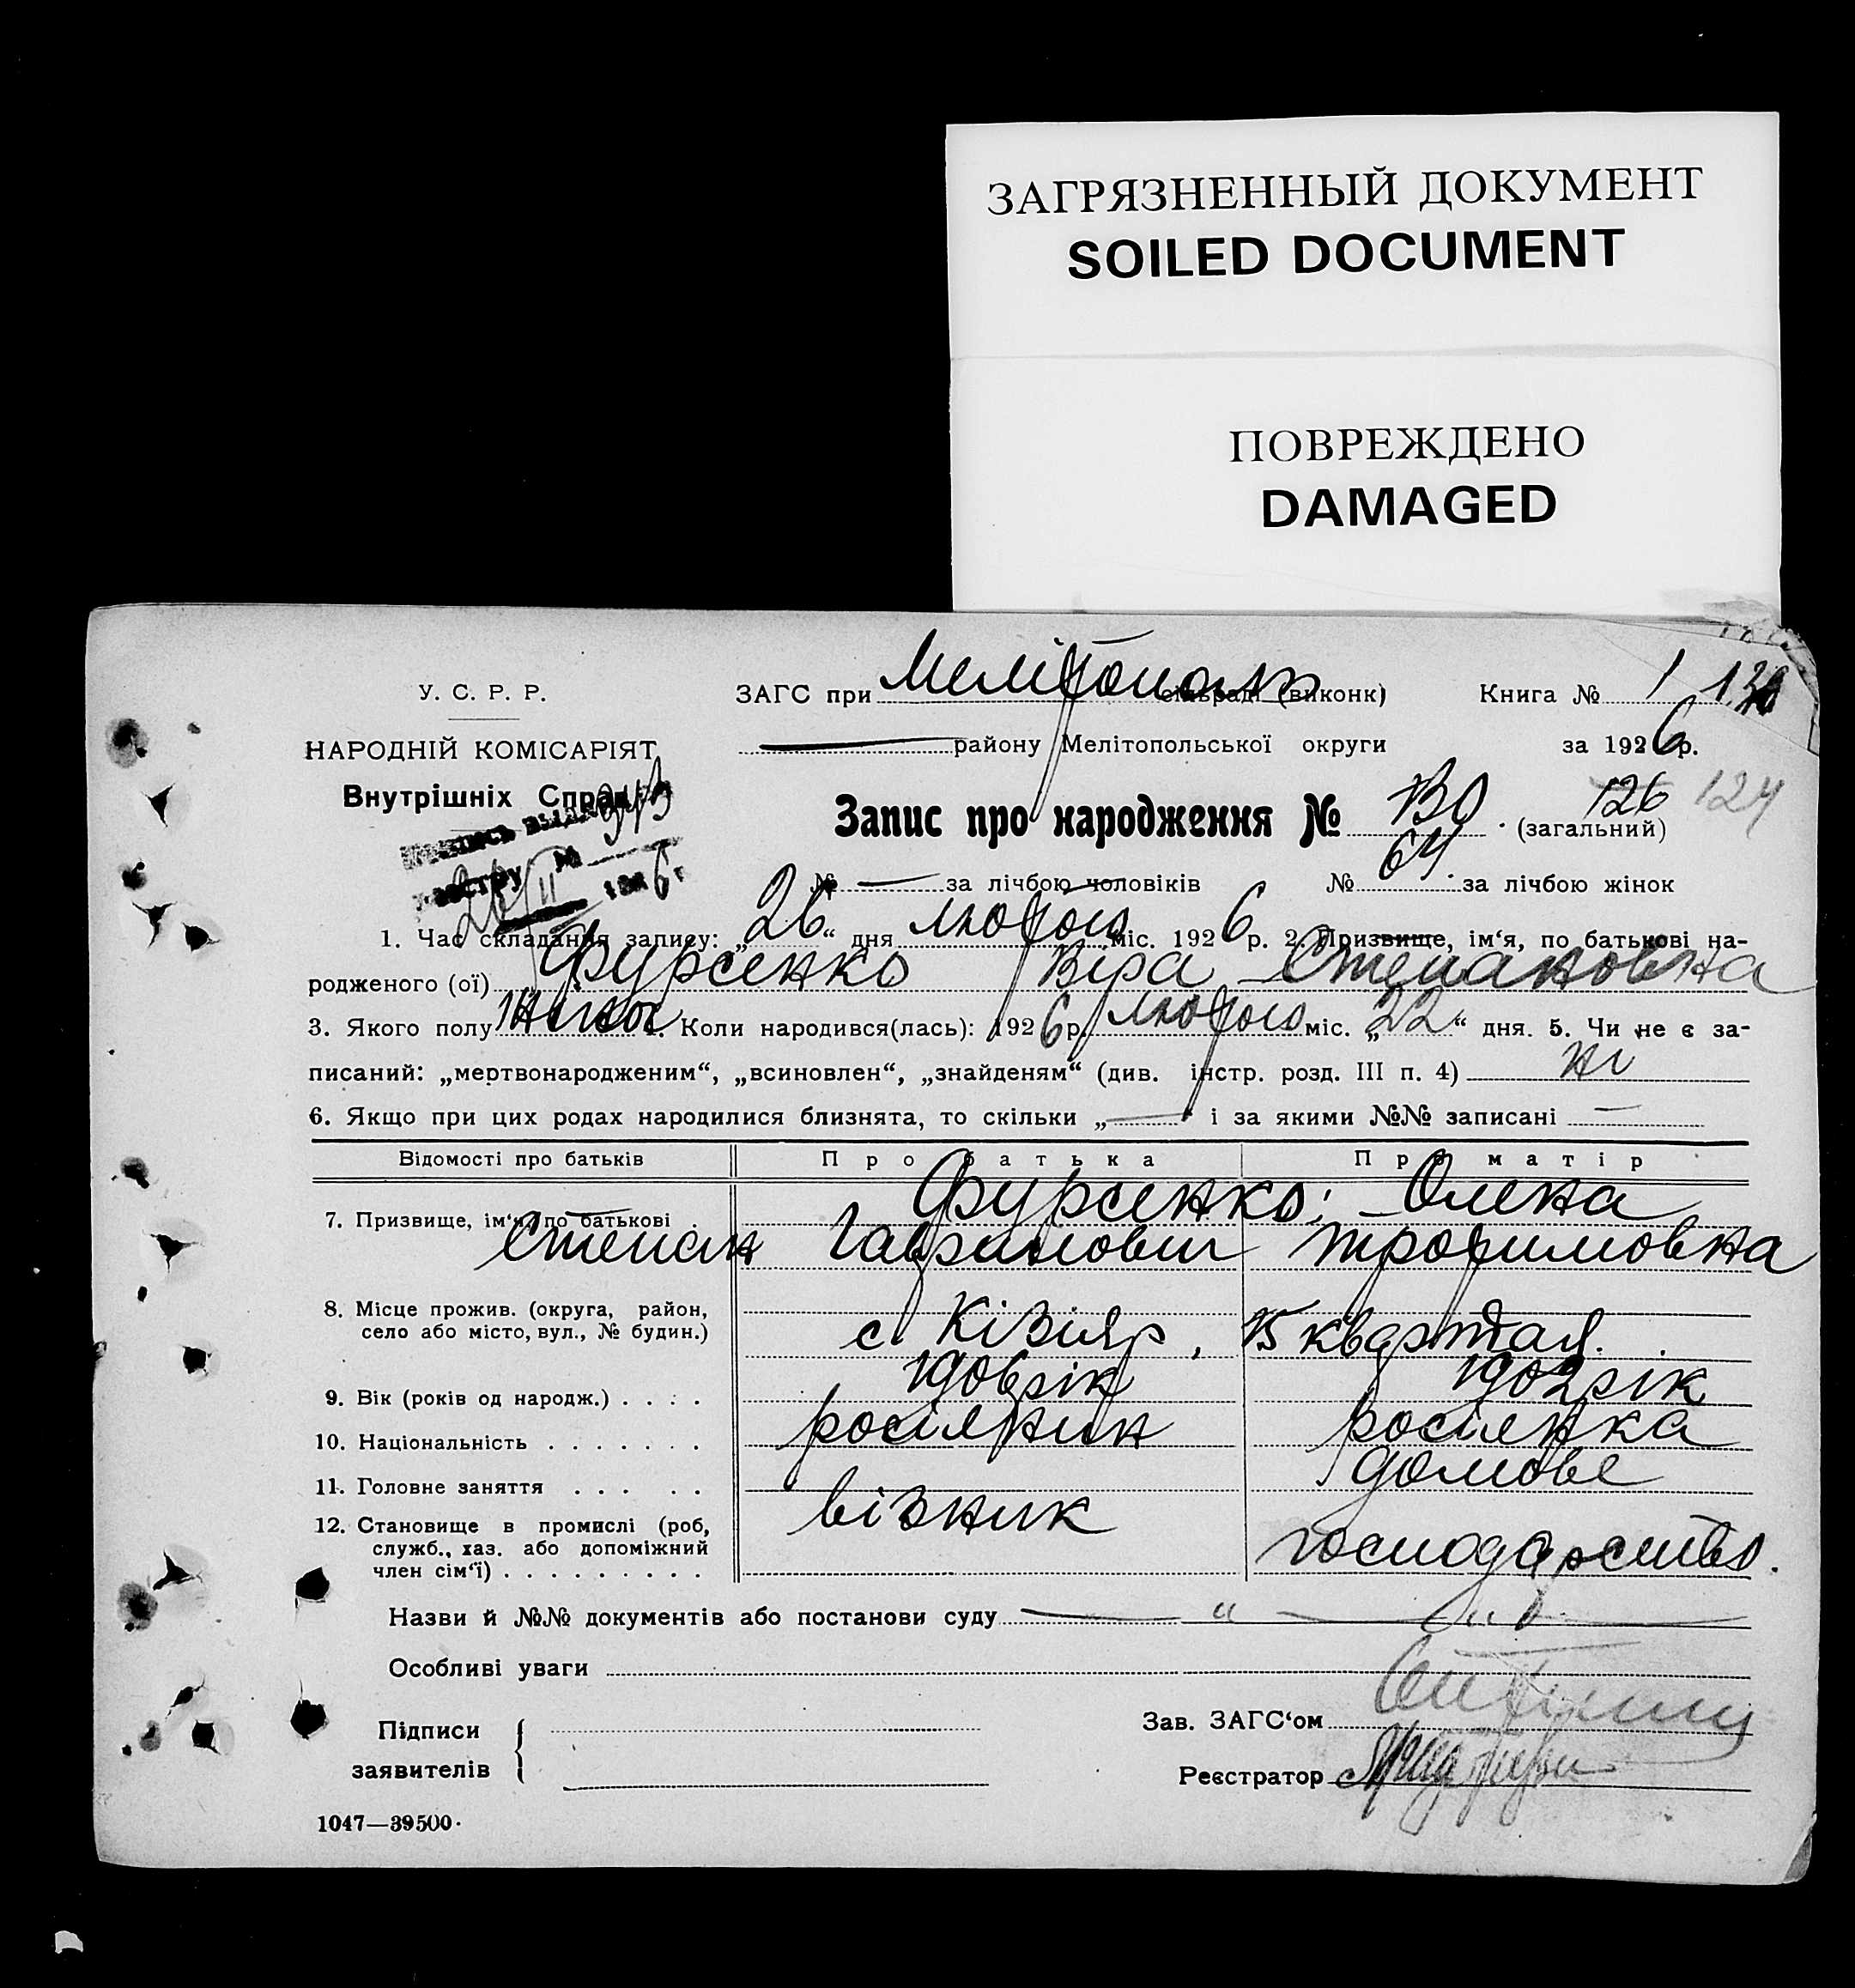 ЗАГРЯЗНЕННЫЙ ДОКУМЕНТ
SOILED DOCUMENT
ПОВРЕЖДЕНО
DAMAGED
У. С. Р. Р.
ЗАГС при Мелітополь сільраді (виконк)
Книга № 1
НАРОДНІЙ КОМІСАРІЯТ
Внутрішніх Справ
району Мелітопольської округи
за 1926 р.
Запис про народження № 130 126 124
(загальний)
№ — за лічбою чоловіків № 64 за лічбою жінок
1. Час складання запису: „26“ дня лютого міс. 1926 р. 2. Призвище, ім‘я, по батькові на-
родженого (ої) Фурсенко Віра Степановна
3. Якого полу жіноч 4. Коли народився(лась): 1926 р. лютого міс. „22“ дня. 5. Чи не є за-
писаний: „мертвонародженим“, „всиновлен“, „знайденям“ (див. інстр. розд. III п. 4) ні
6. Якщо при цих родах народилися близнята, то скільки „—“ і за якими №№ записані —
Відомості про батьків
Про батька
Про матір
7. Призвище, ім‘я, по батькові
Фурсенко; Олена
Степан Гаврилович Трофимовна
8. Місце прожив. (округа, район,
село або місто, вул., № будин.)
с. Кізіяр, 15 квартал.
9. Вік (років од народж.) . . . .
1902 рік
10. Національність . . . . . . .
росіянин
росіянка
11. Головне заняття . . . . .
візник
домове
господарство.
12. Становище в промислі (роб,
служб., хаз. або допоміжний
член сім‘ї) . . . . . . . . .
Назви й №№ документів або постанови суду — " —
Особливі уваги
Підписи
заявителів
Зав. ЗАГС‘ом
Реєстратор
1047—39500.